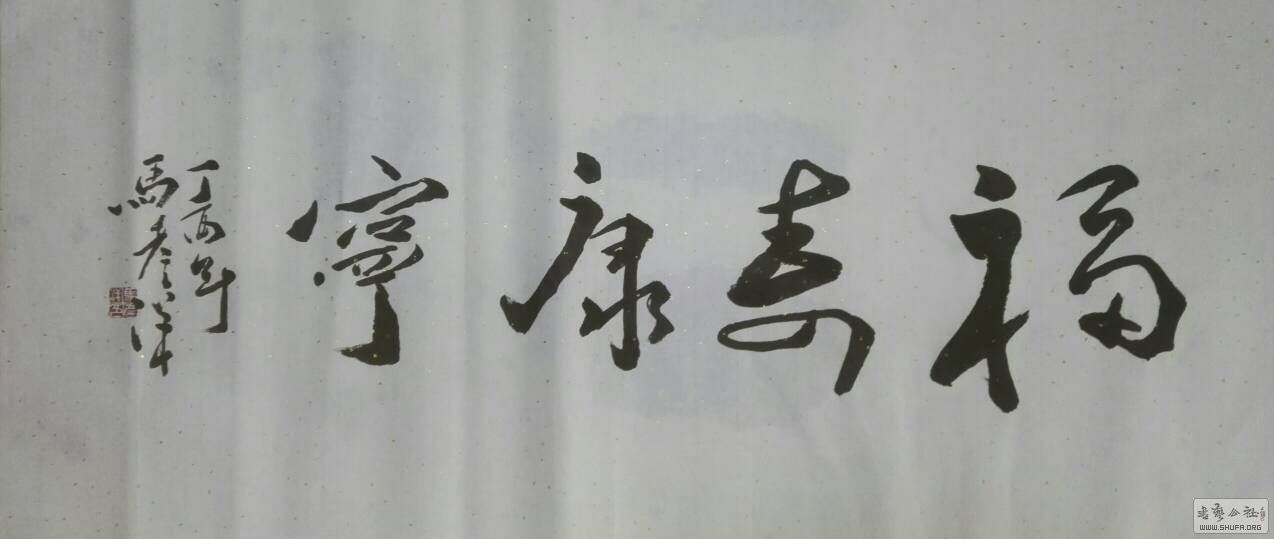 福寿康寧
丁酉年
馬彦
书艺公社
WWW.SHUFA.ORG